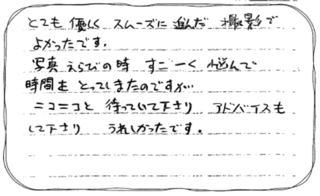 とても 優しく スムーズに 進んだ 撮影で
よかったです。
写真 えらびの時 すごーく 悩んで
時間も とってしまたのですが…
ニコニコと 待っていて下さり アドバイスも
して下さり うれしかったです。